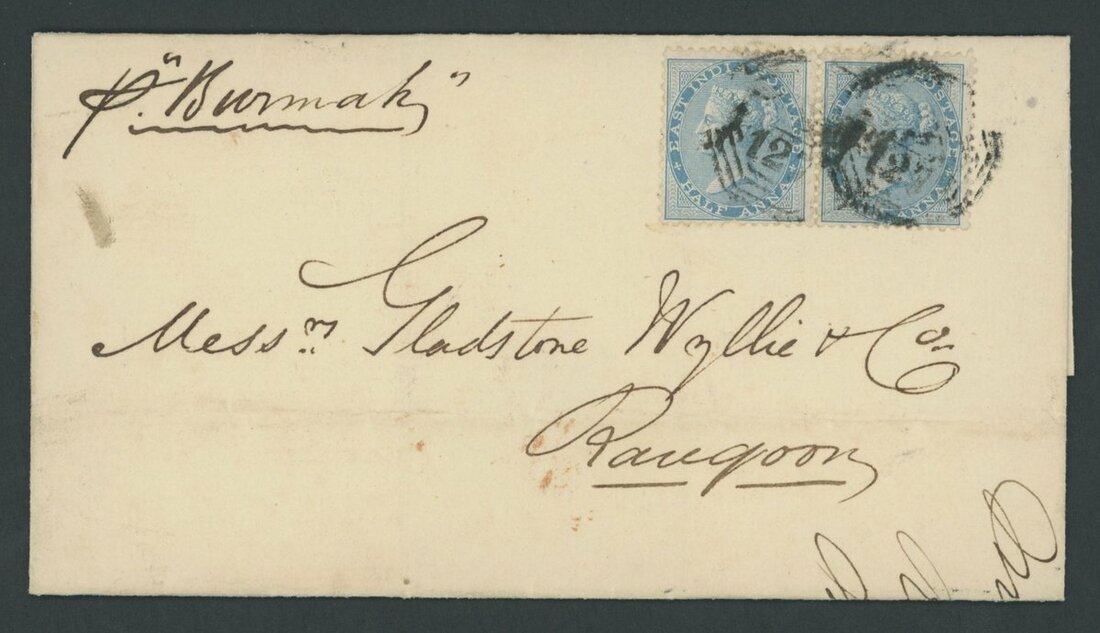 p. "Burmah"
EAST INDIA POSTAGE
HALF ANNA
12
POSTAGE
ANNA
12
Messrs. Gladstone Wyllie & Co.
Rangoon